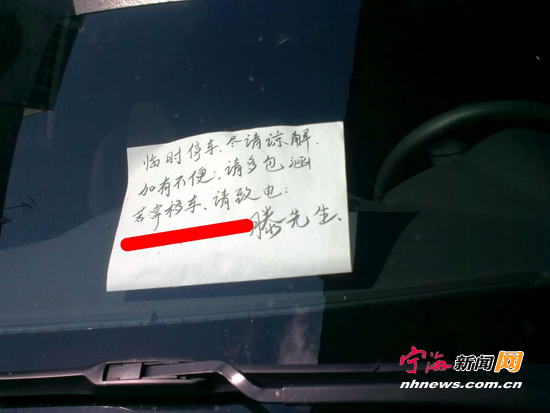 临时停车，尽请谅解.
加有不便，请多包涵
若需移车、请致电：
滕先生.
宁海新闻网
nhnews.com.cn